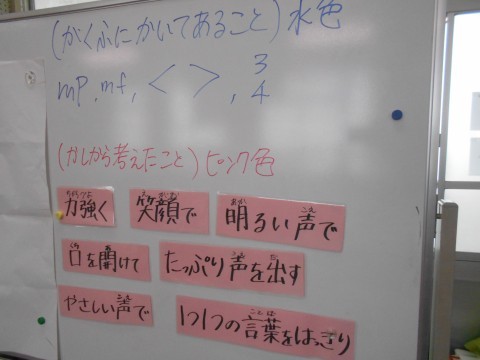 (がくふにかいてあること) 水色
mp, mf, < >, 3/4
(かしから考えたこと) ピンク色
力強く 笑顔で 明るい声で
口を開けて たっぷり声を出す
やさしい声で 1つ1つの言葉をはっきり